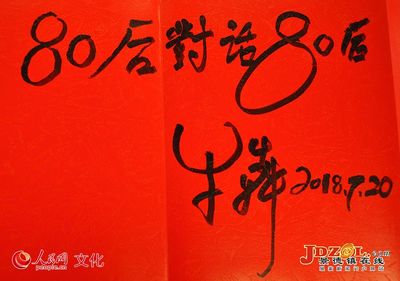 80后對话80后
牛犇 2018.7.20
人民网 文化
people.cn
JDZOL.com
景德镇在线